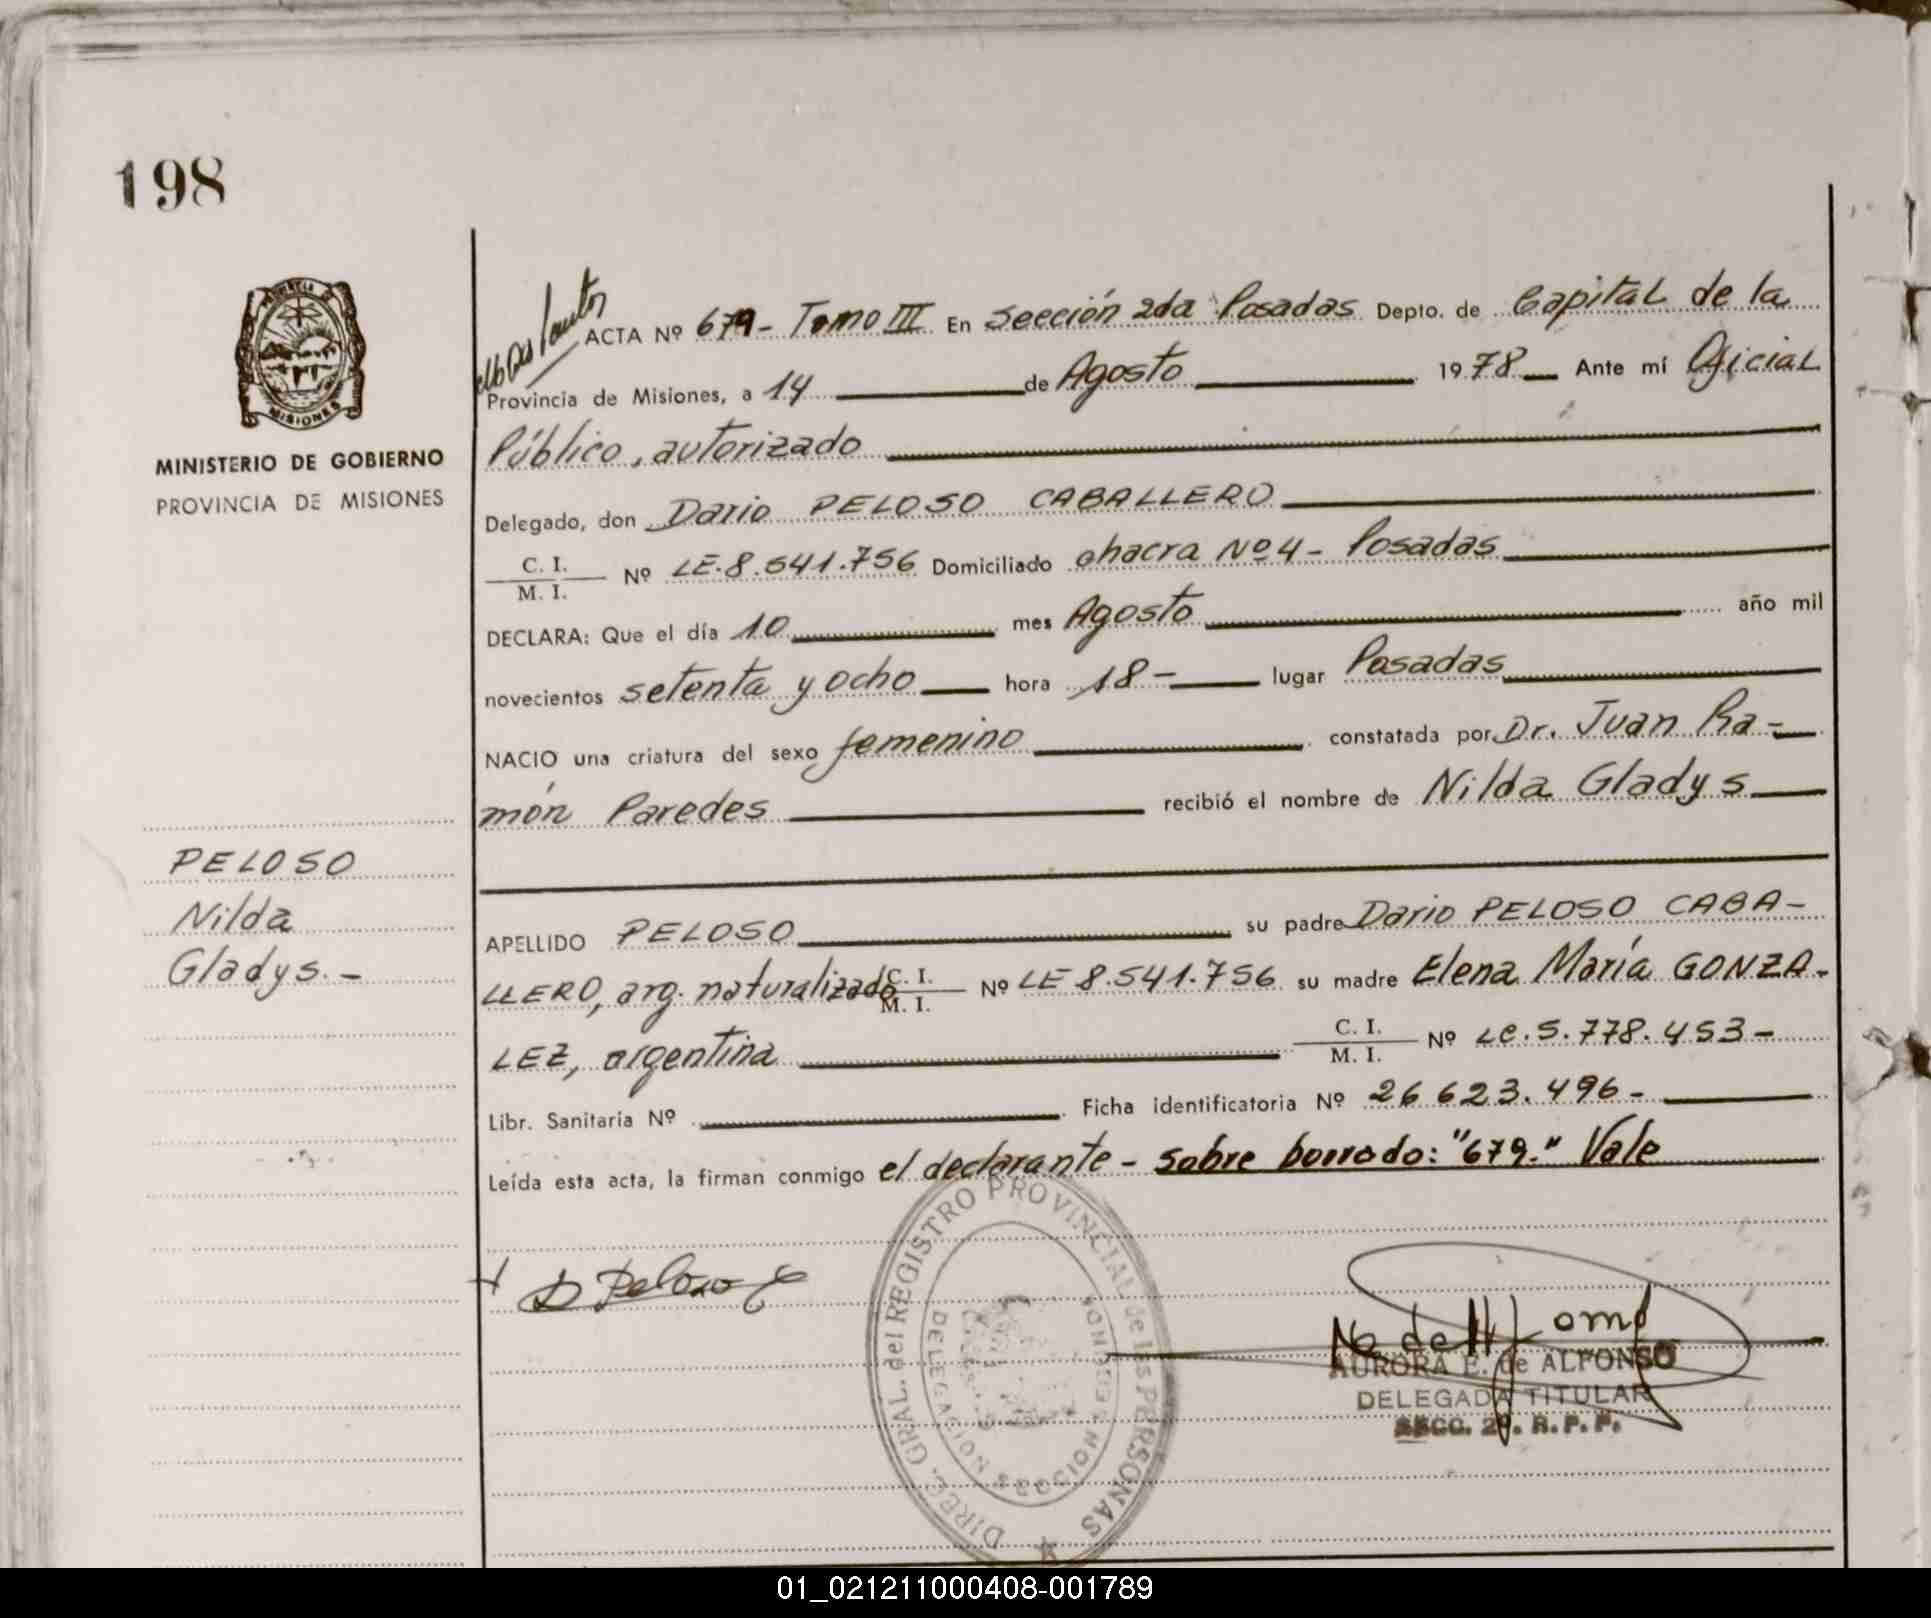 198
ACTA Nº 679- Tomo III En Sección 2da Posadas Depto. de Capital de la
Provincia de Misiones, a 14 de Agosto 1978 Ante mí Oficial
Público, autorizado
MINISTERIO DE GOBIERNO
PROVINCIA DE MISIONES
Delegado, don Dario PELOSO CABALLERO
C. I.
M. I. Nº LE.8.541.756 Domiciliado chacra Nº4- Posadas
DECLARA: Que el día 10 mes Agosto año mil
novecientos setenta y ocho hora 18- lugar Posadas
NACIO una criatura del sexo femenino constatada por Dr. Juan Ra-
món Paredes recibió el nombre de Nilda Gladys
PELOSO
Nilda
Gladys.-
APELLIDO PELOSO su padre Dario PELOSO CABA-
LLERO, arg. naturalizado C. I. M. I. Nº LE 8.541.756 su madre Elena María GONZA-
LEZ, argentina C. I. M. I. Nº LC.5.778.453-
Libr. Sanitaria Nº Ficha identificatoria Nº 26 623.496-
Leída esta acta, la firman conmigo el declarante - sobre borrado: "679." Vale
D Peloso C
DIREC. GRAL. del REGISTRO PROVINCIAL de las PERSONAS
DELEGACION SECCION SEGUNDA
AURORA E. de ALFONSO
DELEGADA TITULAR
SECC. 2ª. R. P. P.
01_021211000408-001789